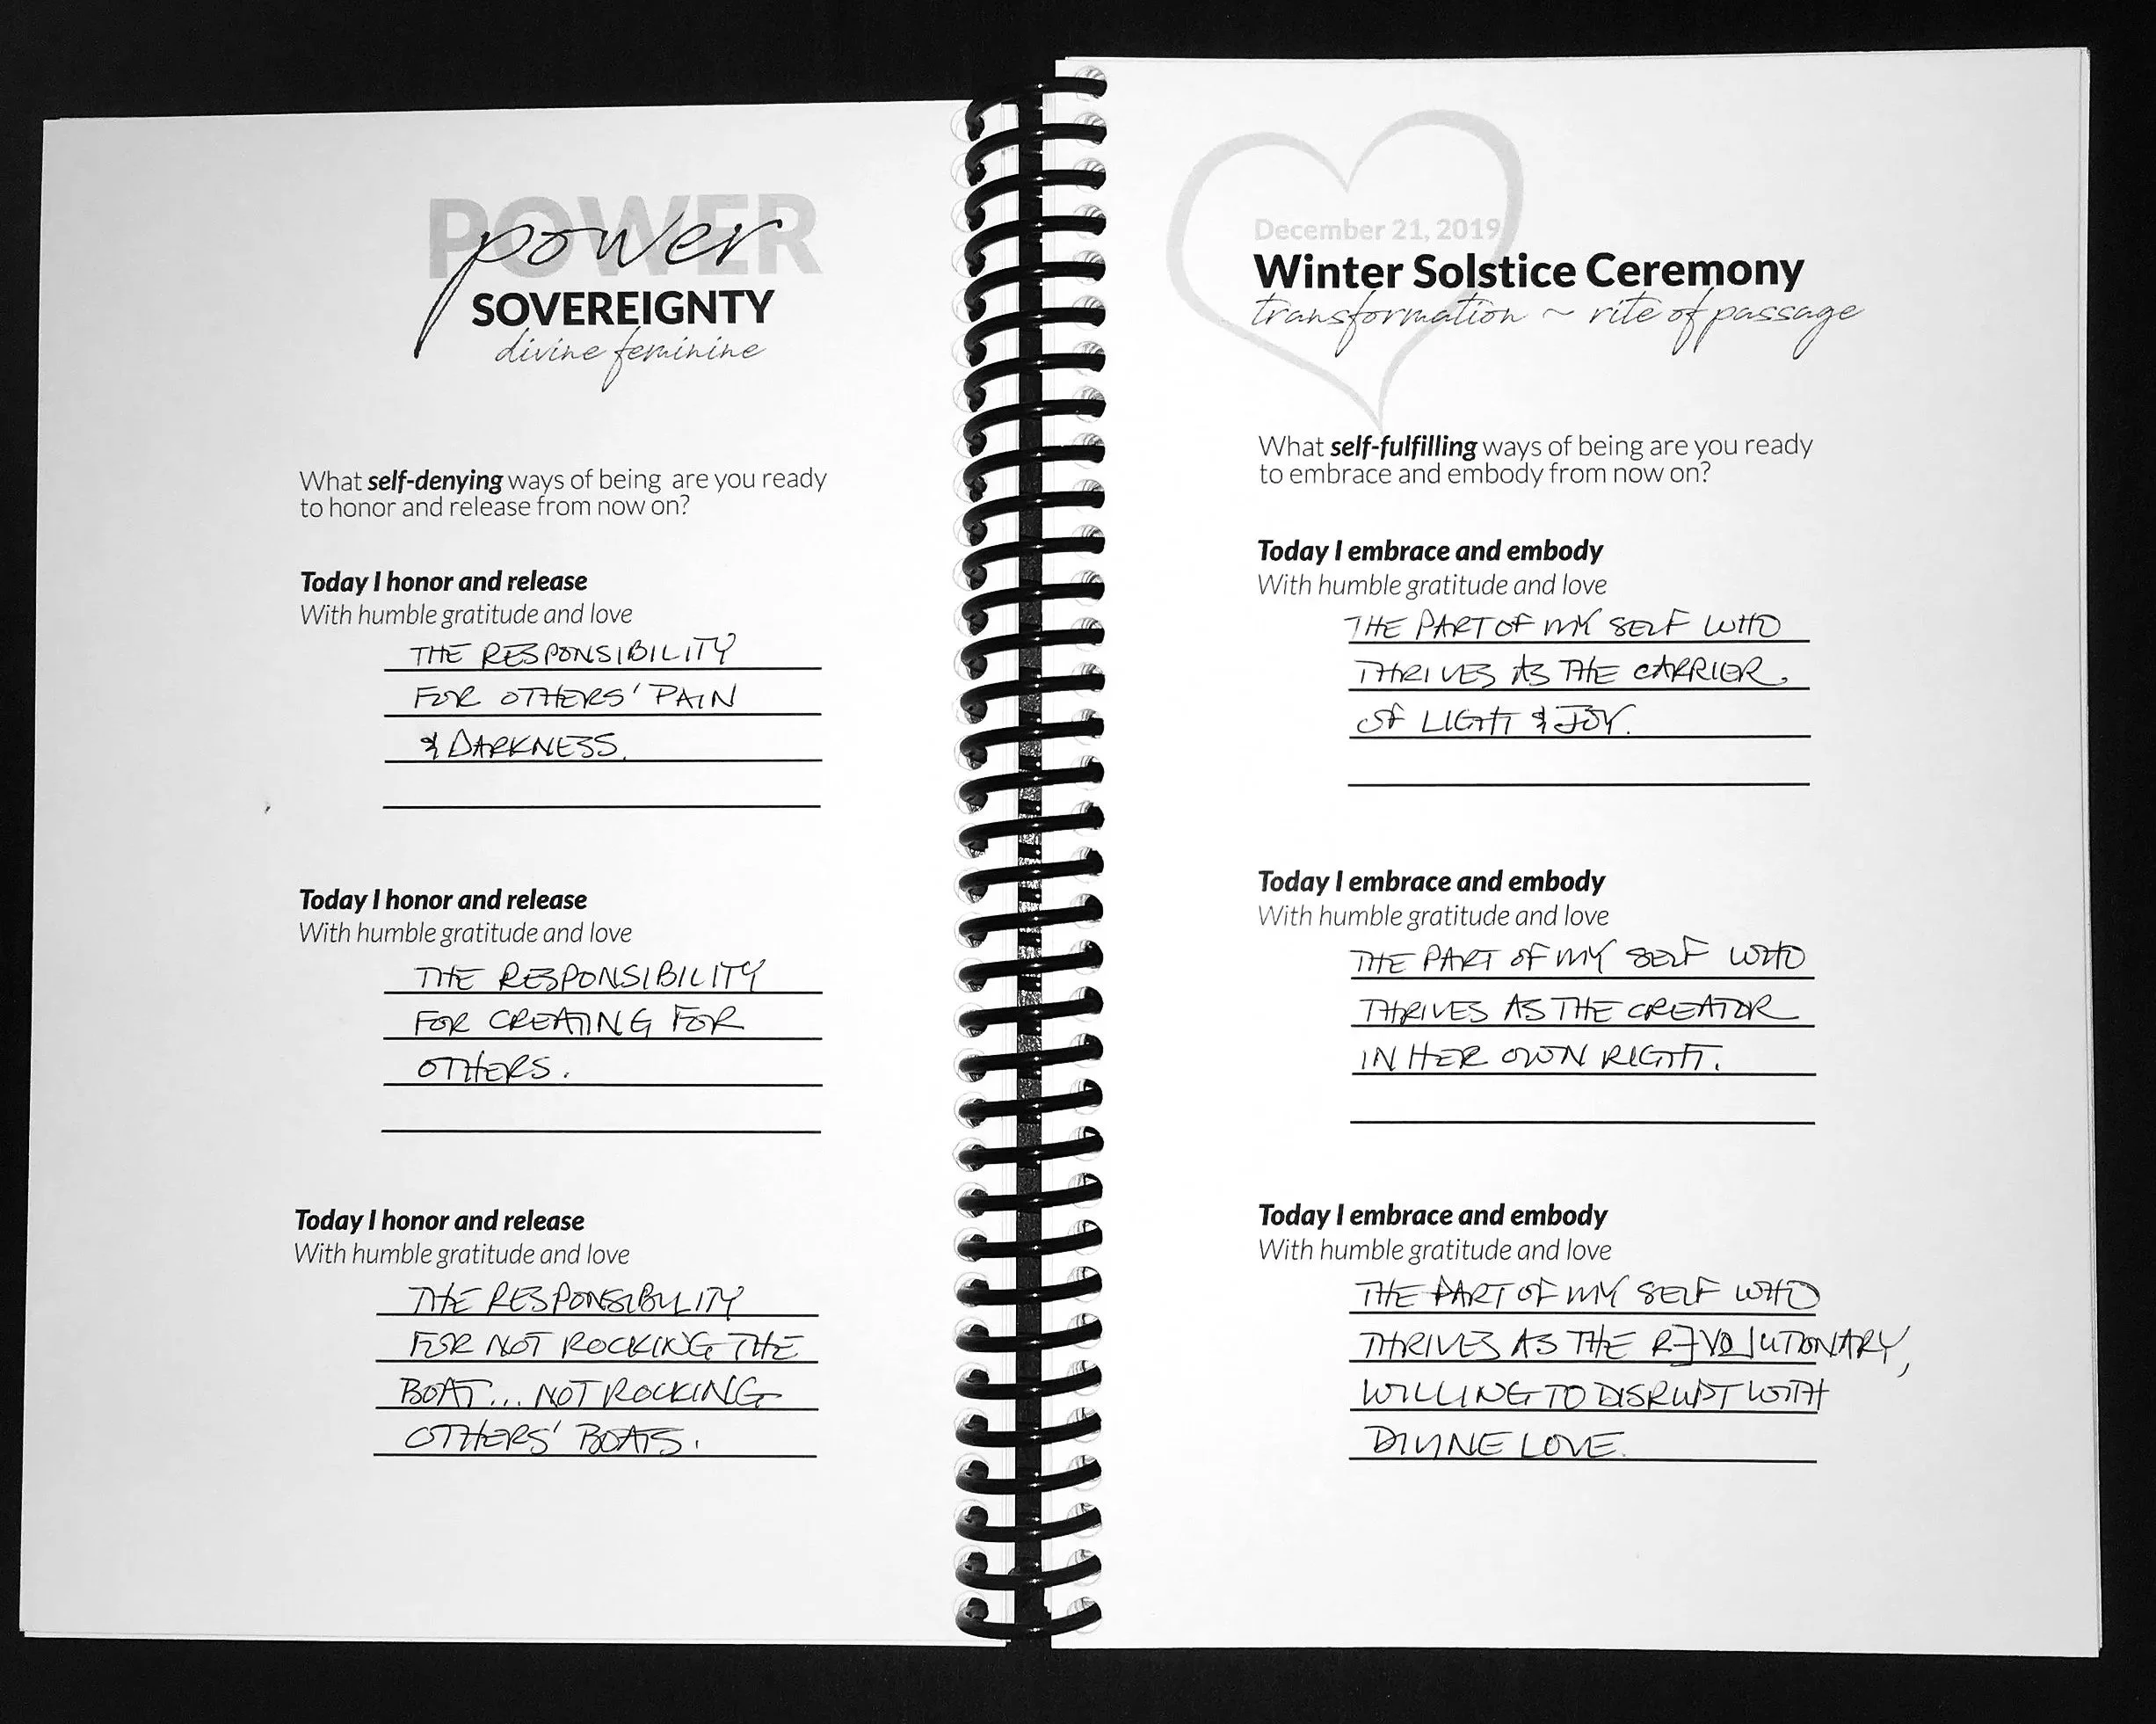 POWER
power
SOVEREIGNTY
divine feminine
What self-denying ways of being are you ready
to honor and release from now on?
Today I honor and release
With humble gratitude and love
THE RESPONSIBILITY
FOR OTHERS' PAIN
& DARKNESS.
Today I honor and release
With humble gratitude and love
THE RESPONSIBILITY
FOR CREATING FOR
OTHERS.
Today I honor and release
With humble gratitude and love
THE RESPONSIBILITY
FOR NOT ROCKING THE
BOAT... NOT ROCKING
OTHERS' BOATS.
December 21, 2019
Winter Solstice Ceremony
transformation ~ rite of passage
What self-fulfilling ways of being are you ready
to embrace and embody from now on?
Today I embrace and embody
With humble gratitude and love
THE PART OF MY SELF WHO
THRIVES AS THE CARRIER
OF LIGHT & JOY.
Today I embrace and embody
With humble gratitude and love
THE PART OF MY SELF WHO
THRIVES AS THE CREATOR
IN HER OWN RIGHT.
Today I embrace and embody
With humble gratitude and love
THE PART OF MY SELF WHO
THRIVES AS THE REVOLUTIONARY,
WILLING TO DISRUPT WITH
DIVINE LOVE.